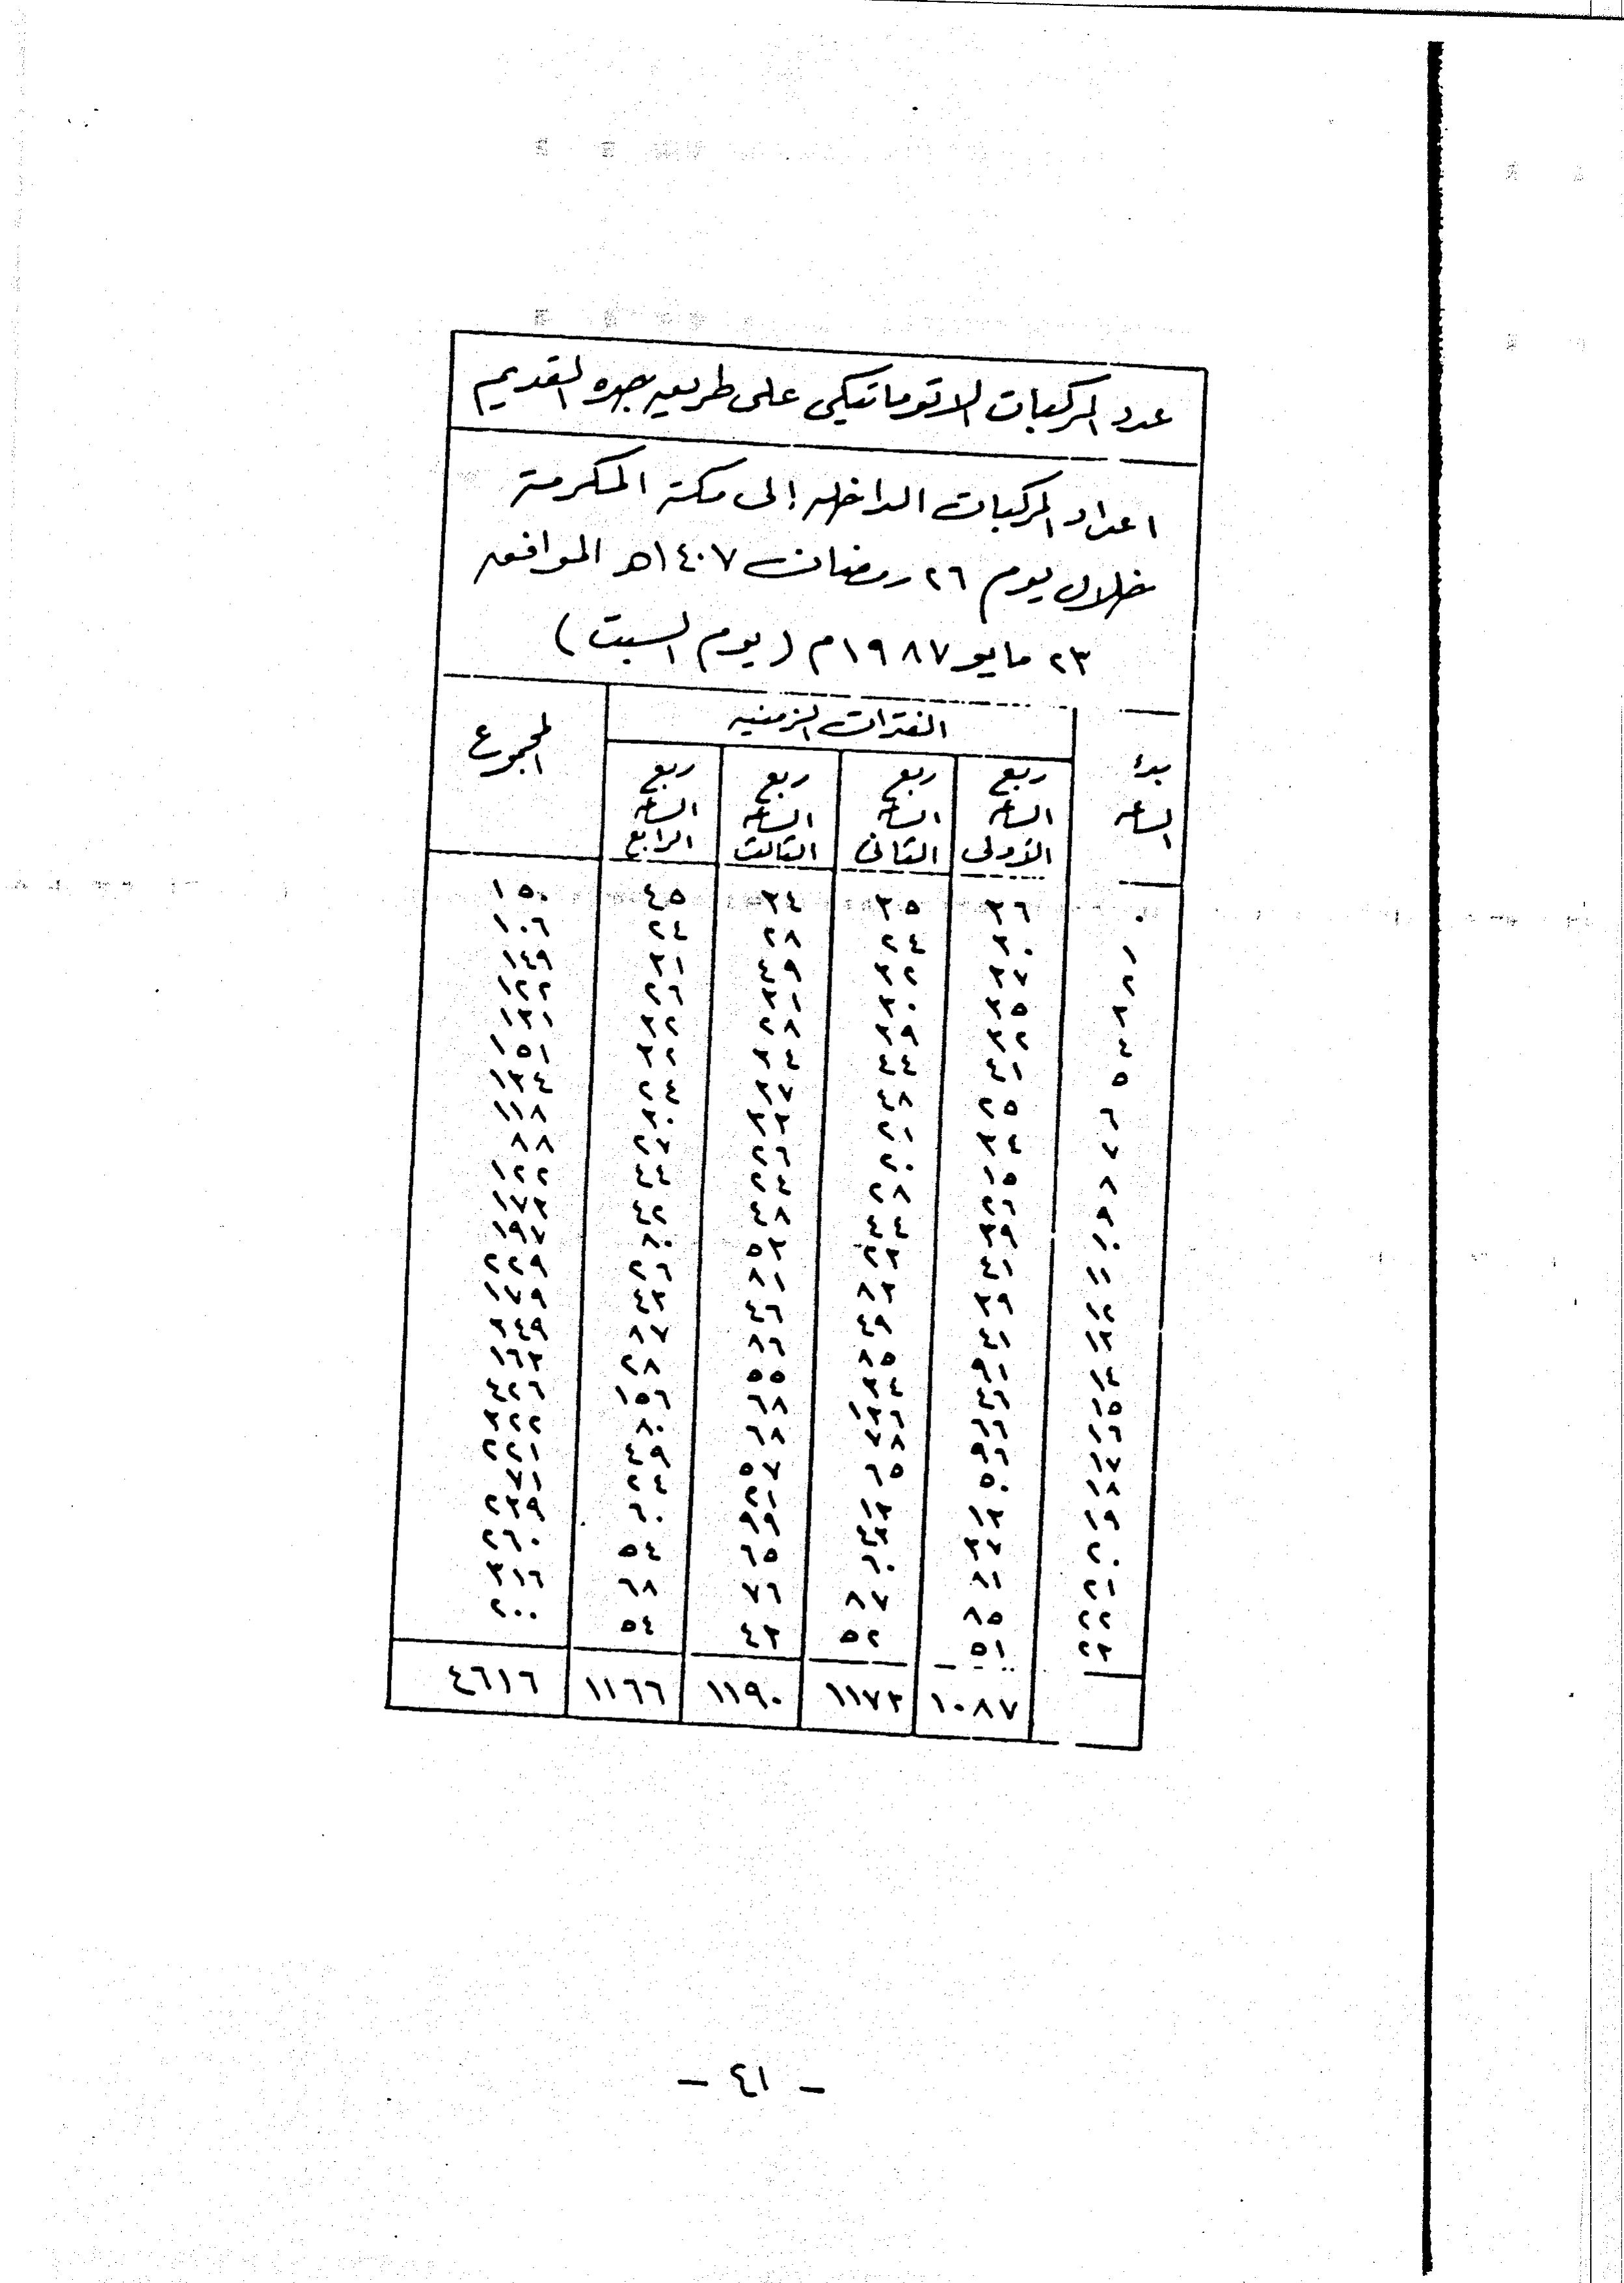 عدد المركبات الاتوماتيكي على طريق جده القديم
اعداد المركبات الداخله إلى مكة المكرمة
خلال يوم ٢٦ رمضان ١٤٠٧هـ الموافق
٢٣ مايو ١٩٨٧م (يوم السبت)
بدء الساعه الفترات الزمنيه المجموع
ربع الساعه الأولى ربع الساعه الثاني ربع الساعه الثالث ربع الساعه الرابع
٠ ٣٦ ٣٥ ٣٤ ٤٥ ١٥٠
١ ٣٠ ٢٤ ٢٨ ٢٤ ١٠٦
٢ ٣٧ ٣٢ ٤٩ ٣١ ١٤٩
٣ ٣٥ ٣٠ ٣١ ٢٦ ١٢٢
٤ ٣٢ ٣٩ ٢٨ ٣٢ ١٣١
٥ ٤١ ٤٤ ٣٤ ٣٢ ١٥١
٦ ٢٥ ٤٨ ٣٧ ٢٤ ١٣٤
٧ ٣٤ ٢١ ٣٣ ٣٠ ١١٨
٨ ١٥ ٢٠ ٢٦ ٢٧ ٨٨
٩ ٢٦ ٢٨ ٢٤ ٤٤ ١٢٢
١٠ ٣٩ ٤٤ ٤٨ ٤٢ ١٧٣
١١ ٤١ ٢٣ ٥٣ ٨٠ ١٩٧
١٢ ٣٩ ٨٣ ٨١ ٢٦ ٢٢٩
١٣ ٤١ ٤٩ ٤٦ ٤٣ ١٧٩
١٤ ٩١ ٨٥ ٨٦ ٨٧ ٣٤٩
١٥ ٤٦ ٣٤ ٥٥ ٢٨ ١٦٣
١٦ ٦٦ ١٣٦ ٦٨ ١٥٦ ٤٢٦
١٧ ٩٦ ٧٨ ٦٨ ٨٠ ٣٢٢
١٨ ٥٠ ٦٥ ٥٧ ٤٩ ٢٢١
١٩ ١٣ ١٣ ٢١ ٢٤ ٧١
٢٠ ٣٧ ٤٣ ٩٩ ٦٠ ٢٣٩
٢١ ٨١ ٦٠ ٦٥ ٥٤ ٢٦٠
٢٢ ٨٥ ٨٧ ٧٦ ٦٨ ٣١٦
٢٣ ٥١ ٥٢ ٤٣ ٥٤ ٢٠٠
١٠٨٧ ١١٧٣ ١١٩٠ ١١٦٦ ٤٦١٦
- ٤١ -